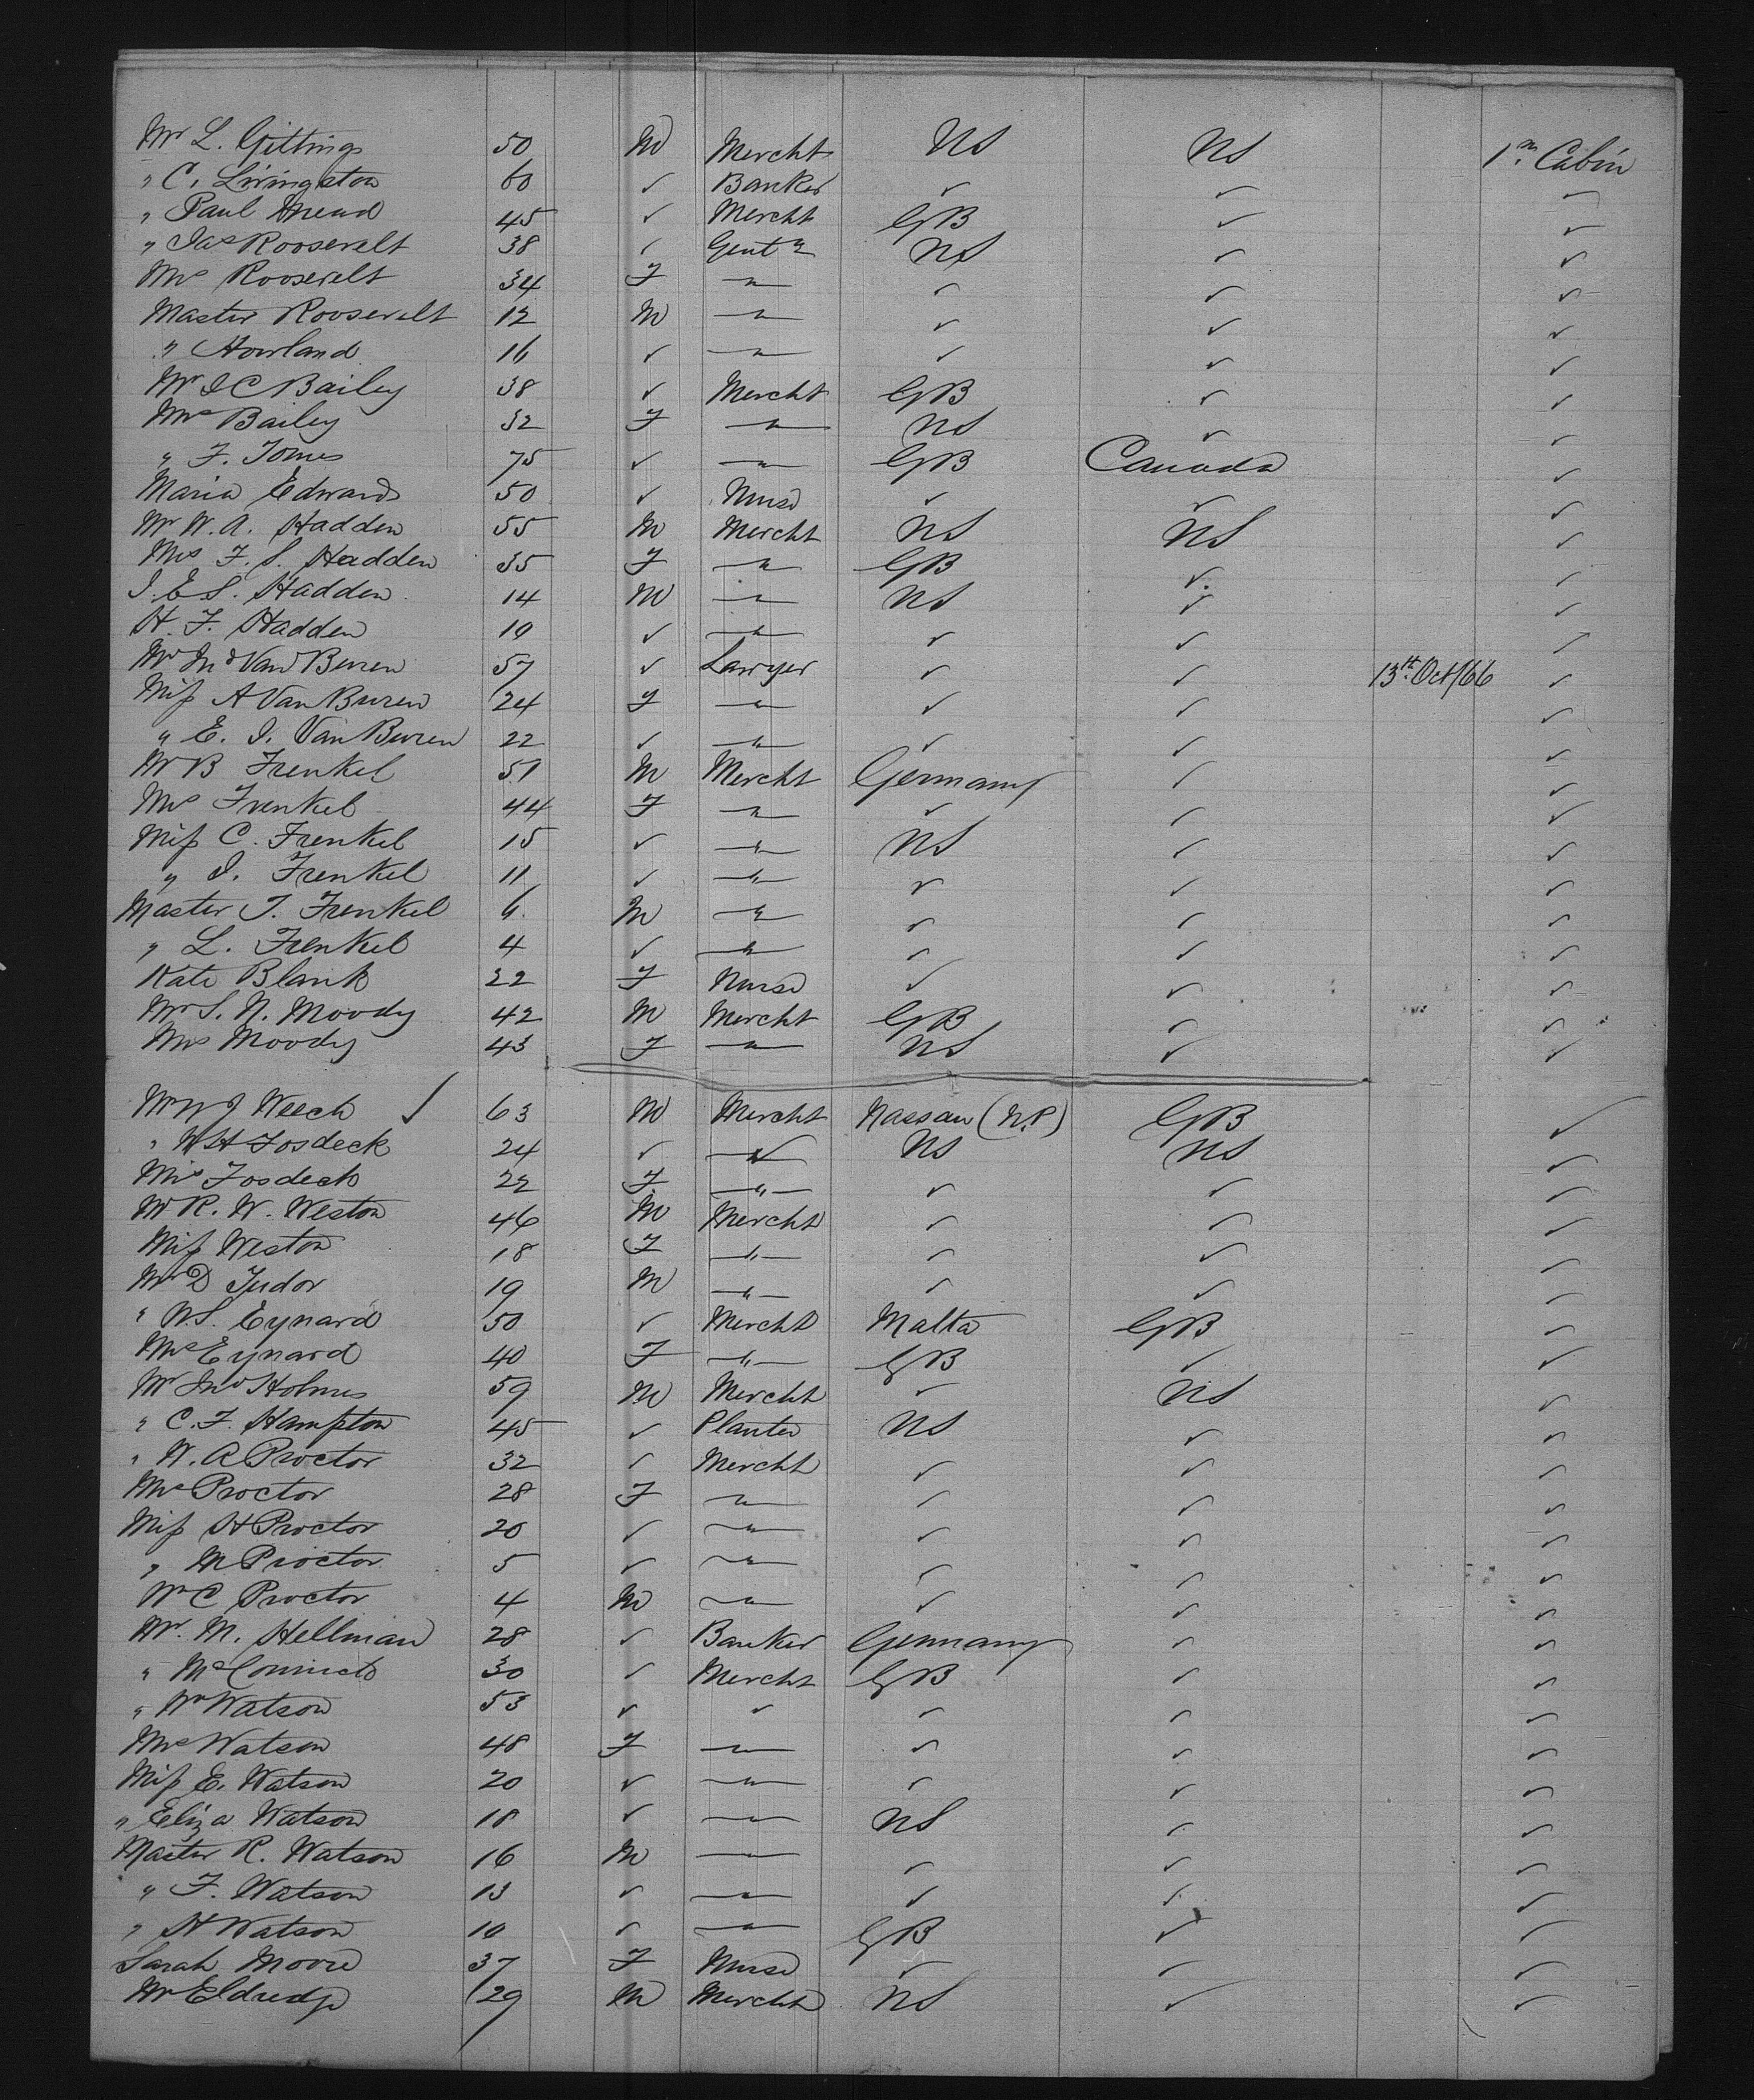 Mr L. Gittings 50 M Mercht US US 1st Cabin
" C. Livingston 60 ✓ Banker ✓ ✓ ✓
" Paul Mead 45 ✓ Mercht GB ✓ ✓
" Jas Roosevelt 38 ✓ Gentn US ✓ ✓
Mrs Roosevelt 34 F — " — ✓ ✓ ✓
Master Roosevelt 12 M — " — ✓ ✓ ✓
" Howland 16 ✓ — " — ✓ ✓ ✓
Mr J C Bailey 38 ✓ Mercht GB ✓ ✓
Mrs Bailey 32 F — " — US ✓ ✓
" F. Tomes 75 ✓ — " — GB Canada ✓
Maria Edwards 50 ✓ Nurse ✓ ✓ ✓
Mr W. A. Hadden 55 M Mercht US US ✓
Mrs F. S. Hadden 35 F — " — GB ✓ ✓
J. E S. Hadden 14 M — " — US ✓ ✓
H. F. Hadden 10 ✓ — " — ✓ ✓ ✓
Mr Jno Van Buren 57 ✓ Lawyer ✓ ✓ 13th Oct/66 ✓
Miss A Van Buren 24 F — " — ✓ ✓ ✓
" E. J. Van Buren 22 ✓ — " — ✓ ✓ ✓
Mr B Frenkel 51 M Mercht Germany ✓ ✓
Mrs Frenkel 44 F — " — ✓ ✓ ✓
Miss C. Frenkel 15 ✓ — " — US ✓ ✓
" J. Frenkel 11 ✓ — " — ✓ ✓ ✓
Master T. Frenkel 6 M — " — ✓ ✓ ✓
" L. Frenkel 4 ✓ — " — ✓ ✓ ✓
Kate Blank 22 F Nurse ✓ ✓ ✓
Mr S. N. Moody 42 M Mercht GB ✓ ✓
Mrs Moody 43 F — " — US ✓ ✓
Mr W J Weech ✓ 63 M Mercht Nassau (N.P) GB ✓
" W H Fosdeck 24 ✓ — ✓ US US ✓
Mrs Fosdeck 22 F — " — ✓ ✓ ✓
Mr R. W. Weston 46 M Mercht ✓ ✓ ✓
Miss Weston 18 F — " — ✓ ✓ ✓
Mr D Tudor 19 M — " — ✓ ✓ ✓
" W S. Eynard 50 ✓ Mercht Malta GB ✓
Mrs Eynard 40 F — " — GB ✓ ✓
Mr Jno Holmes 59 M Mercht ✓ US ✓
" C. F. Hampton 45 ✓ Planter US ✓ ✓
" W. A Proctor 32 ✓ Mercht ✓ ✓ ✓
Mrs Proctor 28 F — " — ✓ ✓ ✓
Miss H Proctor 20 ✓ — " — ✓ ✓ ✓
" M Proctor 5 ✓ — " — ✓ ✓ ✓
Wm C Proctor 4 M — " — ✓ ✓ ✓
Mr. M. Hellman 28 ✓ Banker Germany ✓ ✓
" 30 ✓ Mercht GB ✓ ✓
" Wm Watson 53 ✓ ✓ ✓ ✓ ✓
Mrs Watson 48 F — " — ✓ ✓ ✓
Miss E. Watson 20 ✓ — " — ✓ ✓ ✓
" Eliza Watson 18 ✓ — " — US ✓ ✓
Master R. Watson 16 M — " — ✓ ✓ ✓
" F. Watson 13 ✓ — " — ✓ ✓ ✓
" H Watson 10 ✓ — " — GB ✓ ✓
Sarah Moore 37 F Nurse ✓ ✓ ✓
Mr Eldredge 29 M Mercht US ✓ ✓